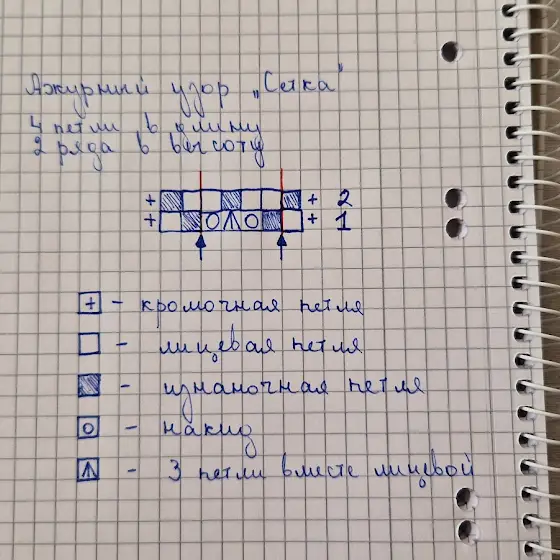 Ажурный узор „Сетка"
4 петли в длину
2 ряда в высоту
+ + 2
+ + 1
+ - кромочная петля
- лицевая петля
- изнаночная петля
о - накид
- 3 петли вместе лицевой